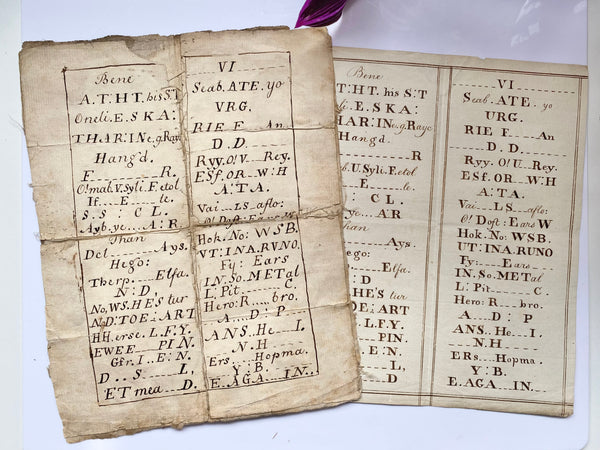 Bene
A.T.HT. his S:T
Oneli. E. SKA:
THAR: INe.g. Raye
Hang'd.
F........R.
O! mab. V. Syli. E. tol
If....E....te.
S.S : CL.
Ayb.ye....A:R
Than
Del........Ays.
Hego:
Therp.....Elfa.
N : D.
No, WS. HE'S tur
No D: TOE: ART
HH. erse. L.F.Y.
EWEE PIN.
Gfr. I..E: N.
D..S......L,
ET mea....D.
VI
Seab. ATE. yo
VRG.
RIE F....An
D. D.
Ryy. O! V...Rey.
ESf. OR...W: H
A: T A.
Vai...LS..aflo:
O! Doft: Ears W
Hok. No: WSB.
VT: INA. RUNO
Fy: Ears
IN. So. METal
L: Pit......C.
Hero: R.....bro.
A....D : P
ANS. He....I.
N.H
Ers....Hopma.
Y: B.
E. AGA....IN.
Bene
T.HT. his S:T
li. E. SKA:
HAR: IN e.g. Raye
Hang'd.
R
ab. U. Syli. E. tol
E.....te.
: CL.
ye....A:R
han
Ays.
ego:
Elfa.
: D
HE'S tur
TOE: ART
L.F.Y.
PIN.
E: N.
L,
D
VI
Seab. ATE. yo
URG.
RIE F....An
D. D.
Ryy. O! U...Rey.
ESf. OR...W: H
A: TA.
Vai...LS..aflo:
O! Doft: Ears W
Hok. No: WSB.
UT: INA. RUNO
Fy: Ears
IN. So. METal
L: Pit......C.
Hero: R....bro.
A....D : P
ANS. He....I.
N.H
ERs....Hopma.
Y: B.
E. AGA....IN.